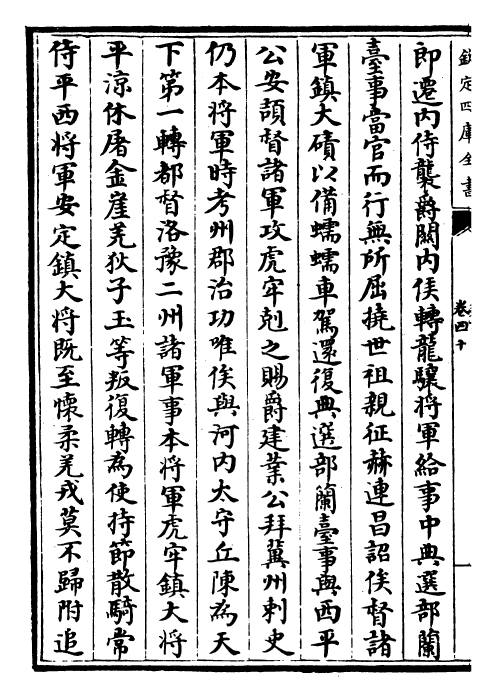 欽定四庫全書
卷四十
即遷内侍襲爵關内侯轉龍驤將軍給事中典選部蘭
臺事當官而行無所屈撓世祖親征赫連昌詔俟督諸
軍鎮大磧以備蠕蠕車駕還復典選部蘭臺事與西平
公安頡督諸軍攻虎牢剋之賜爵建業公拜冀州刺史
仍本將軍時考州郡治功唯俟與河内太守丘陳為天
下第一轉都督洛豫二州諸軍事本將軍虎牢鎮大將
平涼休屠金崖羌狄子玉等叛復轉為使持節散騎常
侍平西將軍安定鎮大將既至懷柔羌戎莫不歸附追